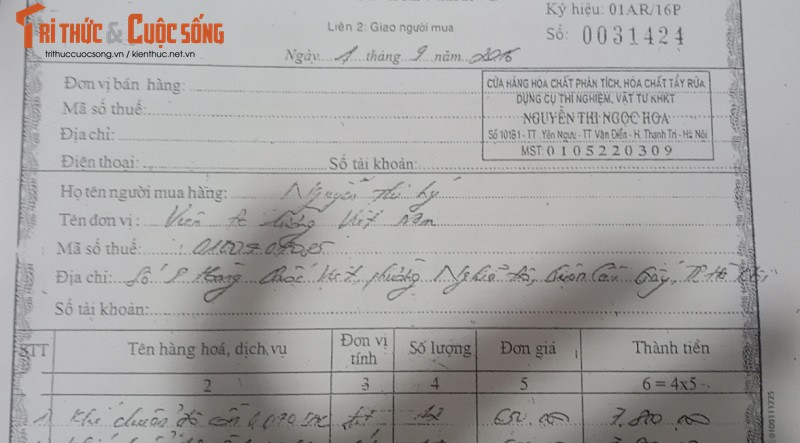 TRI THỨC & CUỘC SỐNG
trithuccuocsong.vn / kienthuc.net.vn
Ký hiệu: 01AR/16P
Liên 2: Giao người mua
Số: 0031424
Ngày 1 tháng 9 năm 2016
Đơn vị bán hàng:
Mã số thuế:
Địa chỉ:
Điện thoại: Số tài khoản:
CỬA HÀNG HÓA CHẤT PHÂN TÍCH, HÓA CHẤT TẨY RỬA
DỤNG CỤ THÍ NGHIỆM, VẬT TƯ KHKT
NGUYỄN THỊ NGỌC HOA
Số 101B1 - TT Yên Ngưu - TT Văn Điển - H. Thanh Trì - Hà Nội
MST: 0105220309
Họ tên người mua hàng: Nguyễn Thị Lý
Tên đơn vị: Viện đo lường Việt Nam
Mã số thuế:
Địa chỉ: Số 8 Hoàng Quốc Việt, phường Nghĩa Đô, quận Cầu Giấy, TP Hà Nội
Số tài khoản:
STT Tên hàng hoá, dịch vụ Đơn vị tính Số lượng Đơn giá Thành tiền
2 3 4 5 6 = 4x5
1 Khí chuẩn độ cồn 12 650.000 7.800.000